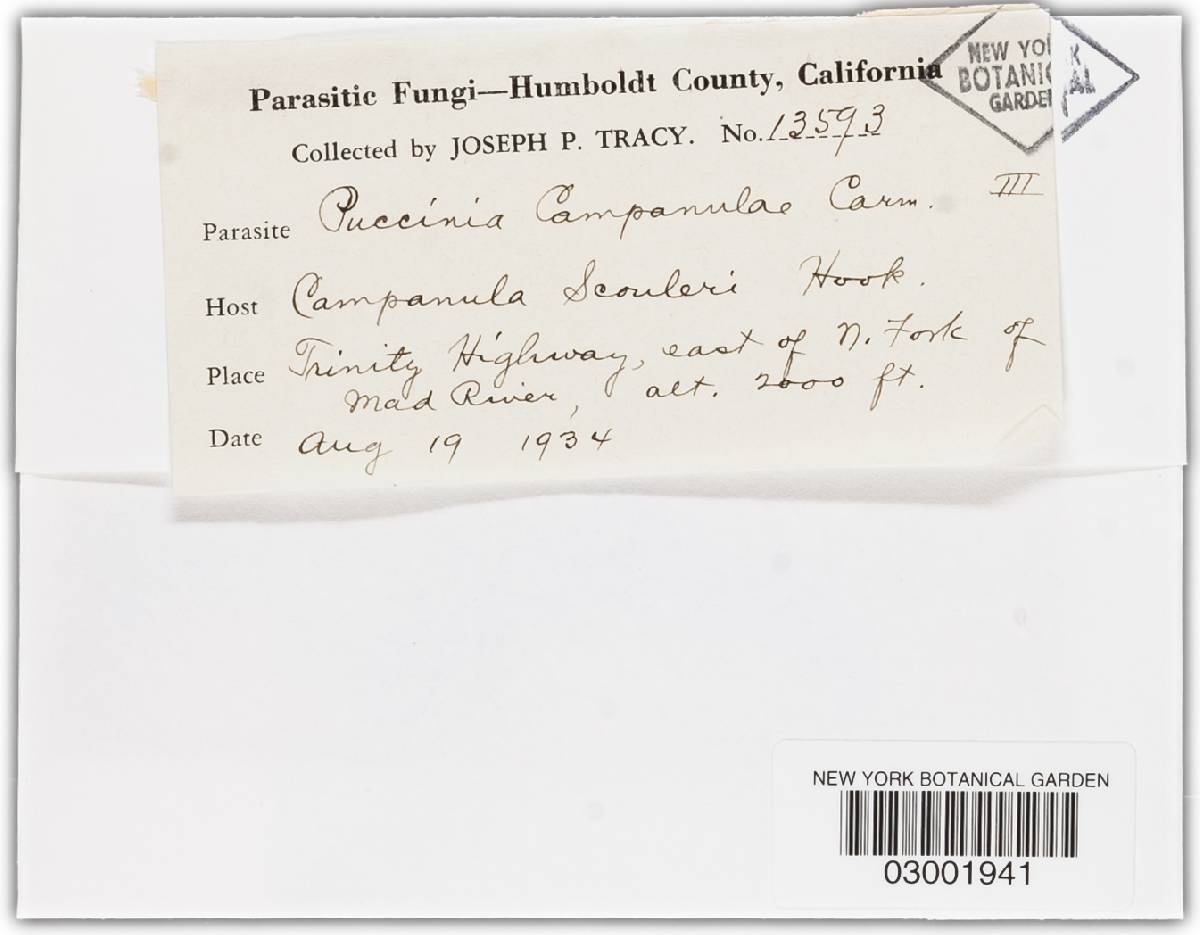 Parasitic Fungi—Humboldt County, California
NEW YORK
BOTANICAL
GARDEN
Collected by JOSEPH P. TRACY. No. 13593
Parasite Puccinia Campanulae Carm. III
Host Campanula Scouleri Hook.
Place Trinity Highway, east of N. Fork of
Mad River, alt. 2000 ft.
Date Aug 19 1934
NEW YORK BOTANICAL GARDEN
03001941